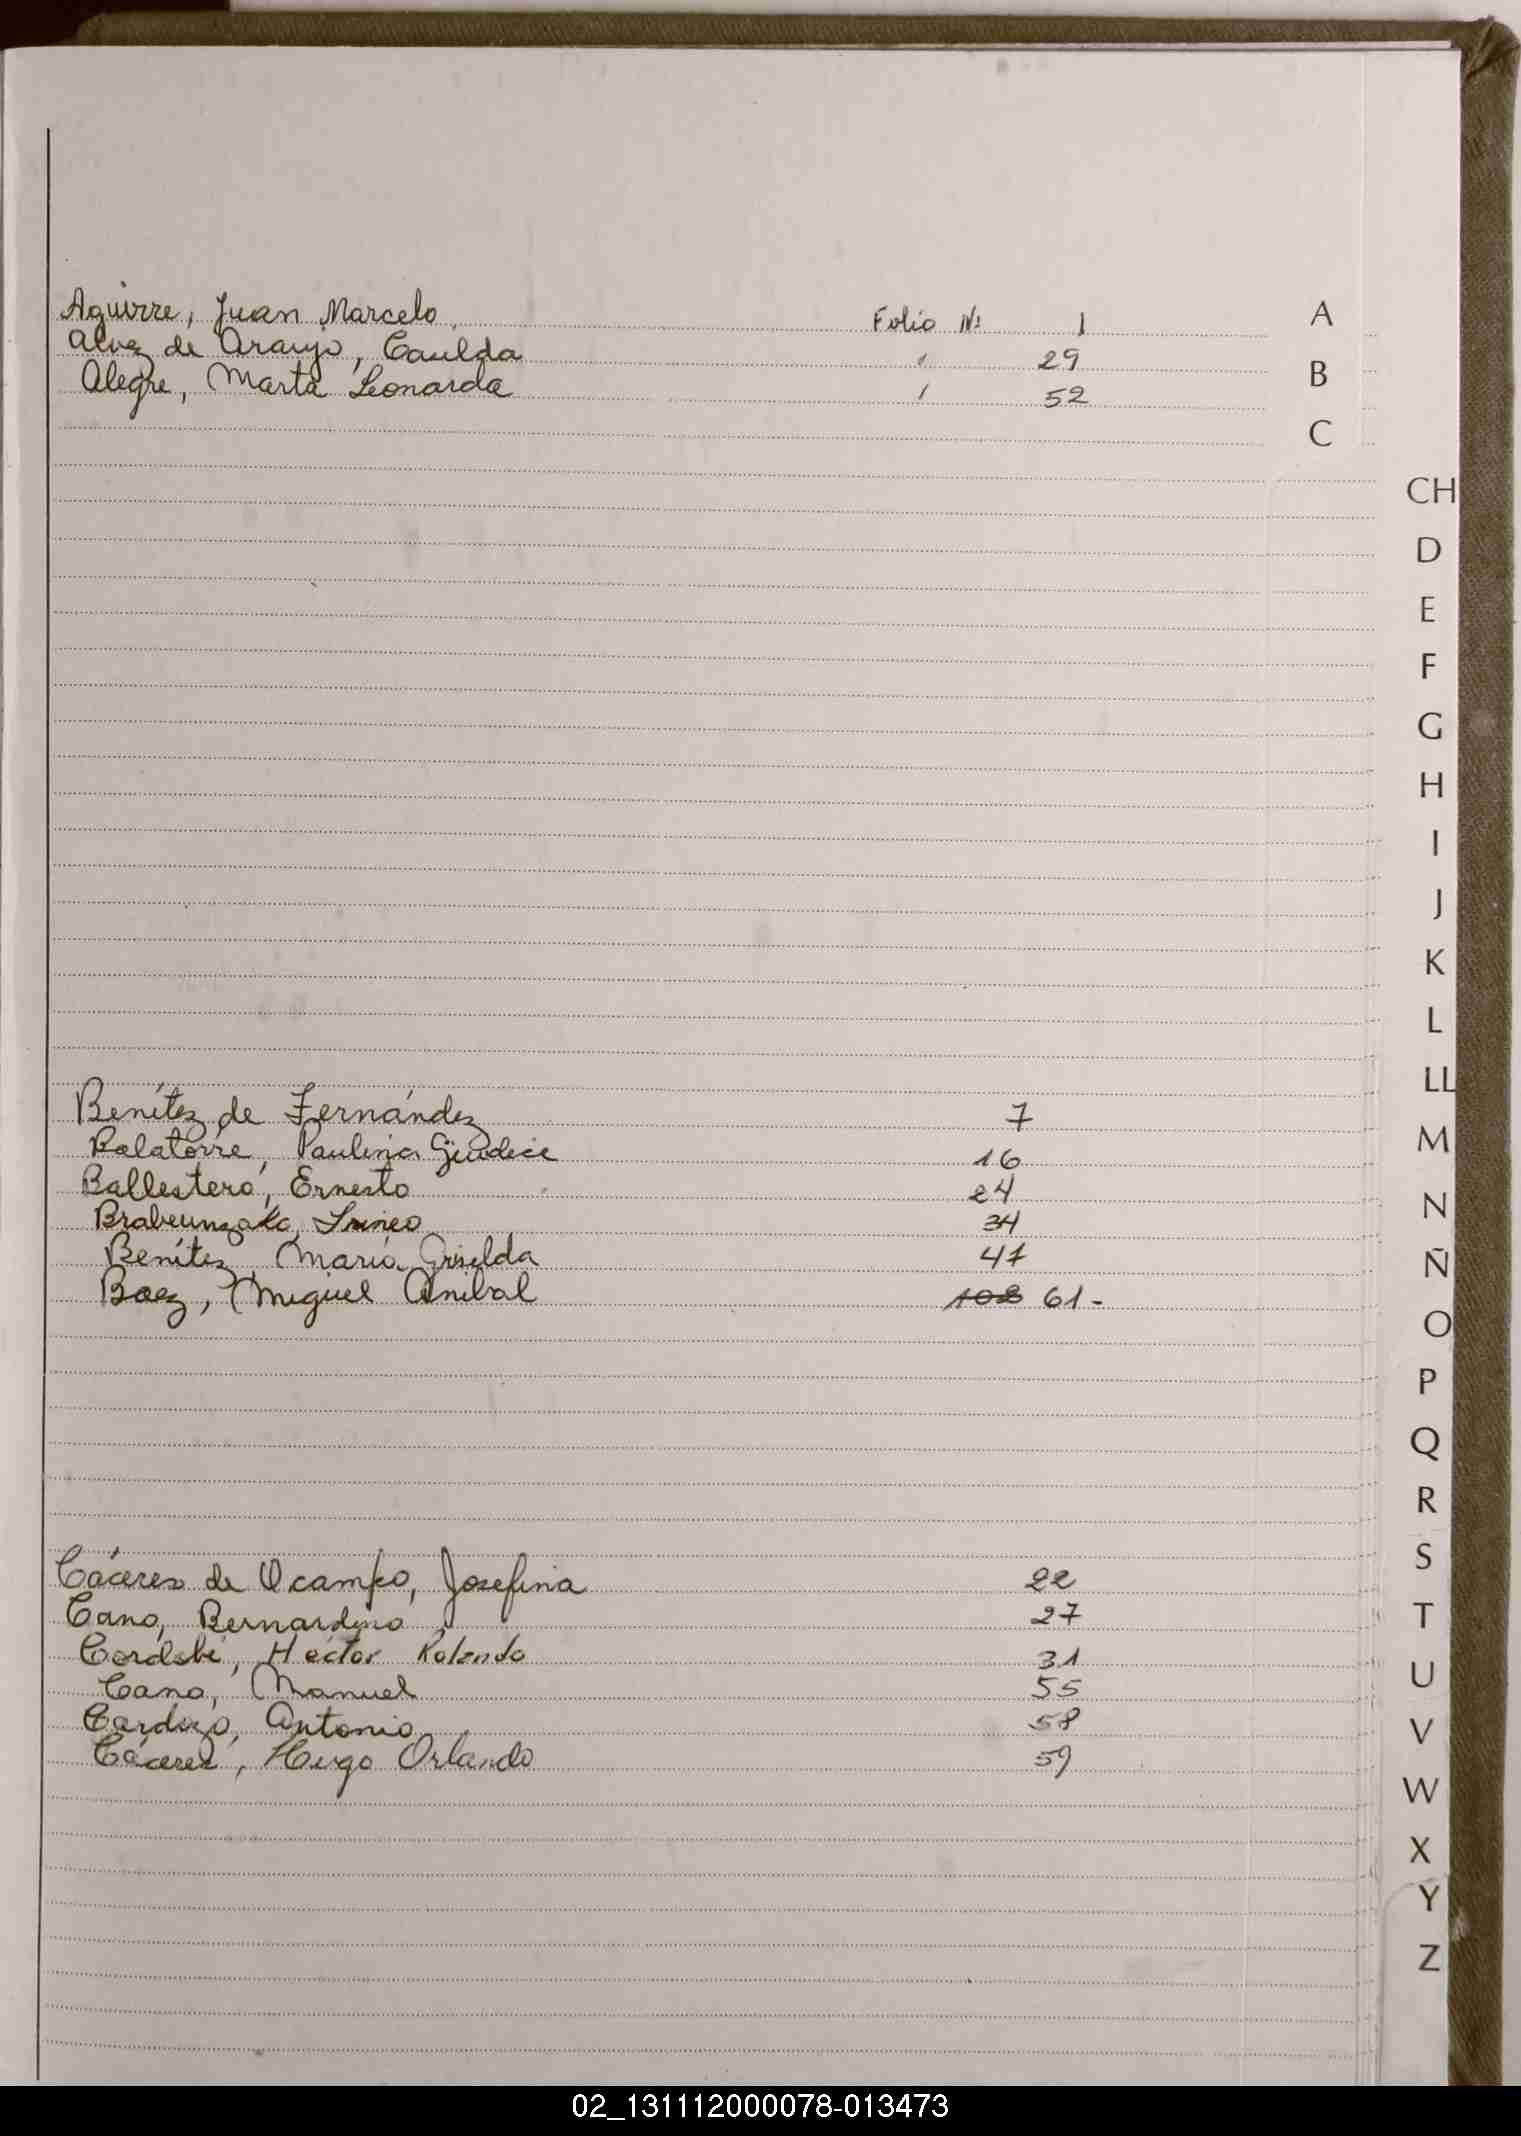 Aguirre, Juan Marcelo Folio Nº 1 A
Alvez de Araujo, Casilda " 29 B
Alegre, Marta Leonarda " 52
C
CH
D
E
F
G
H
I
J
K
L
LL
Benítez de Fernández 7
M
Balatorre, Paulina Giudice 16
Ballestero, Ernesto 24
N
Irineo 34
Benítez María Griselda 47
Ñ
Baez, Miguel Anibal 108 61-
O
P
Q
R
S
Cáceres de Ocampo, Josefina 22
Cano, Bernardino 27 T
Héctor Rolando 31
U
Cano, Manuel 55
Cardozo, Antonio 58 V
Cáceres, Hugo Orlando 59
W
X
Y
Z
02_131112000078-013473